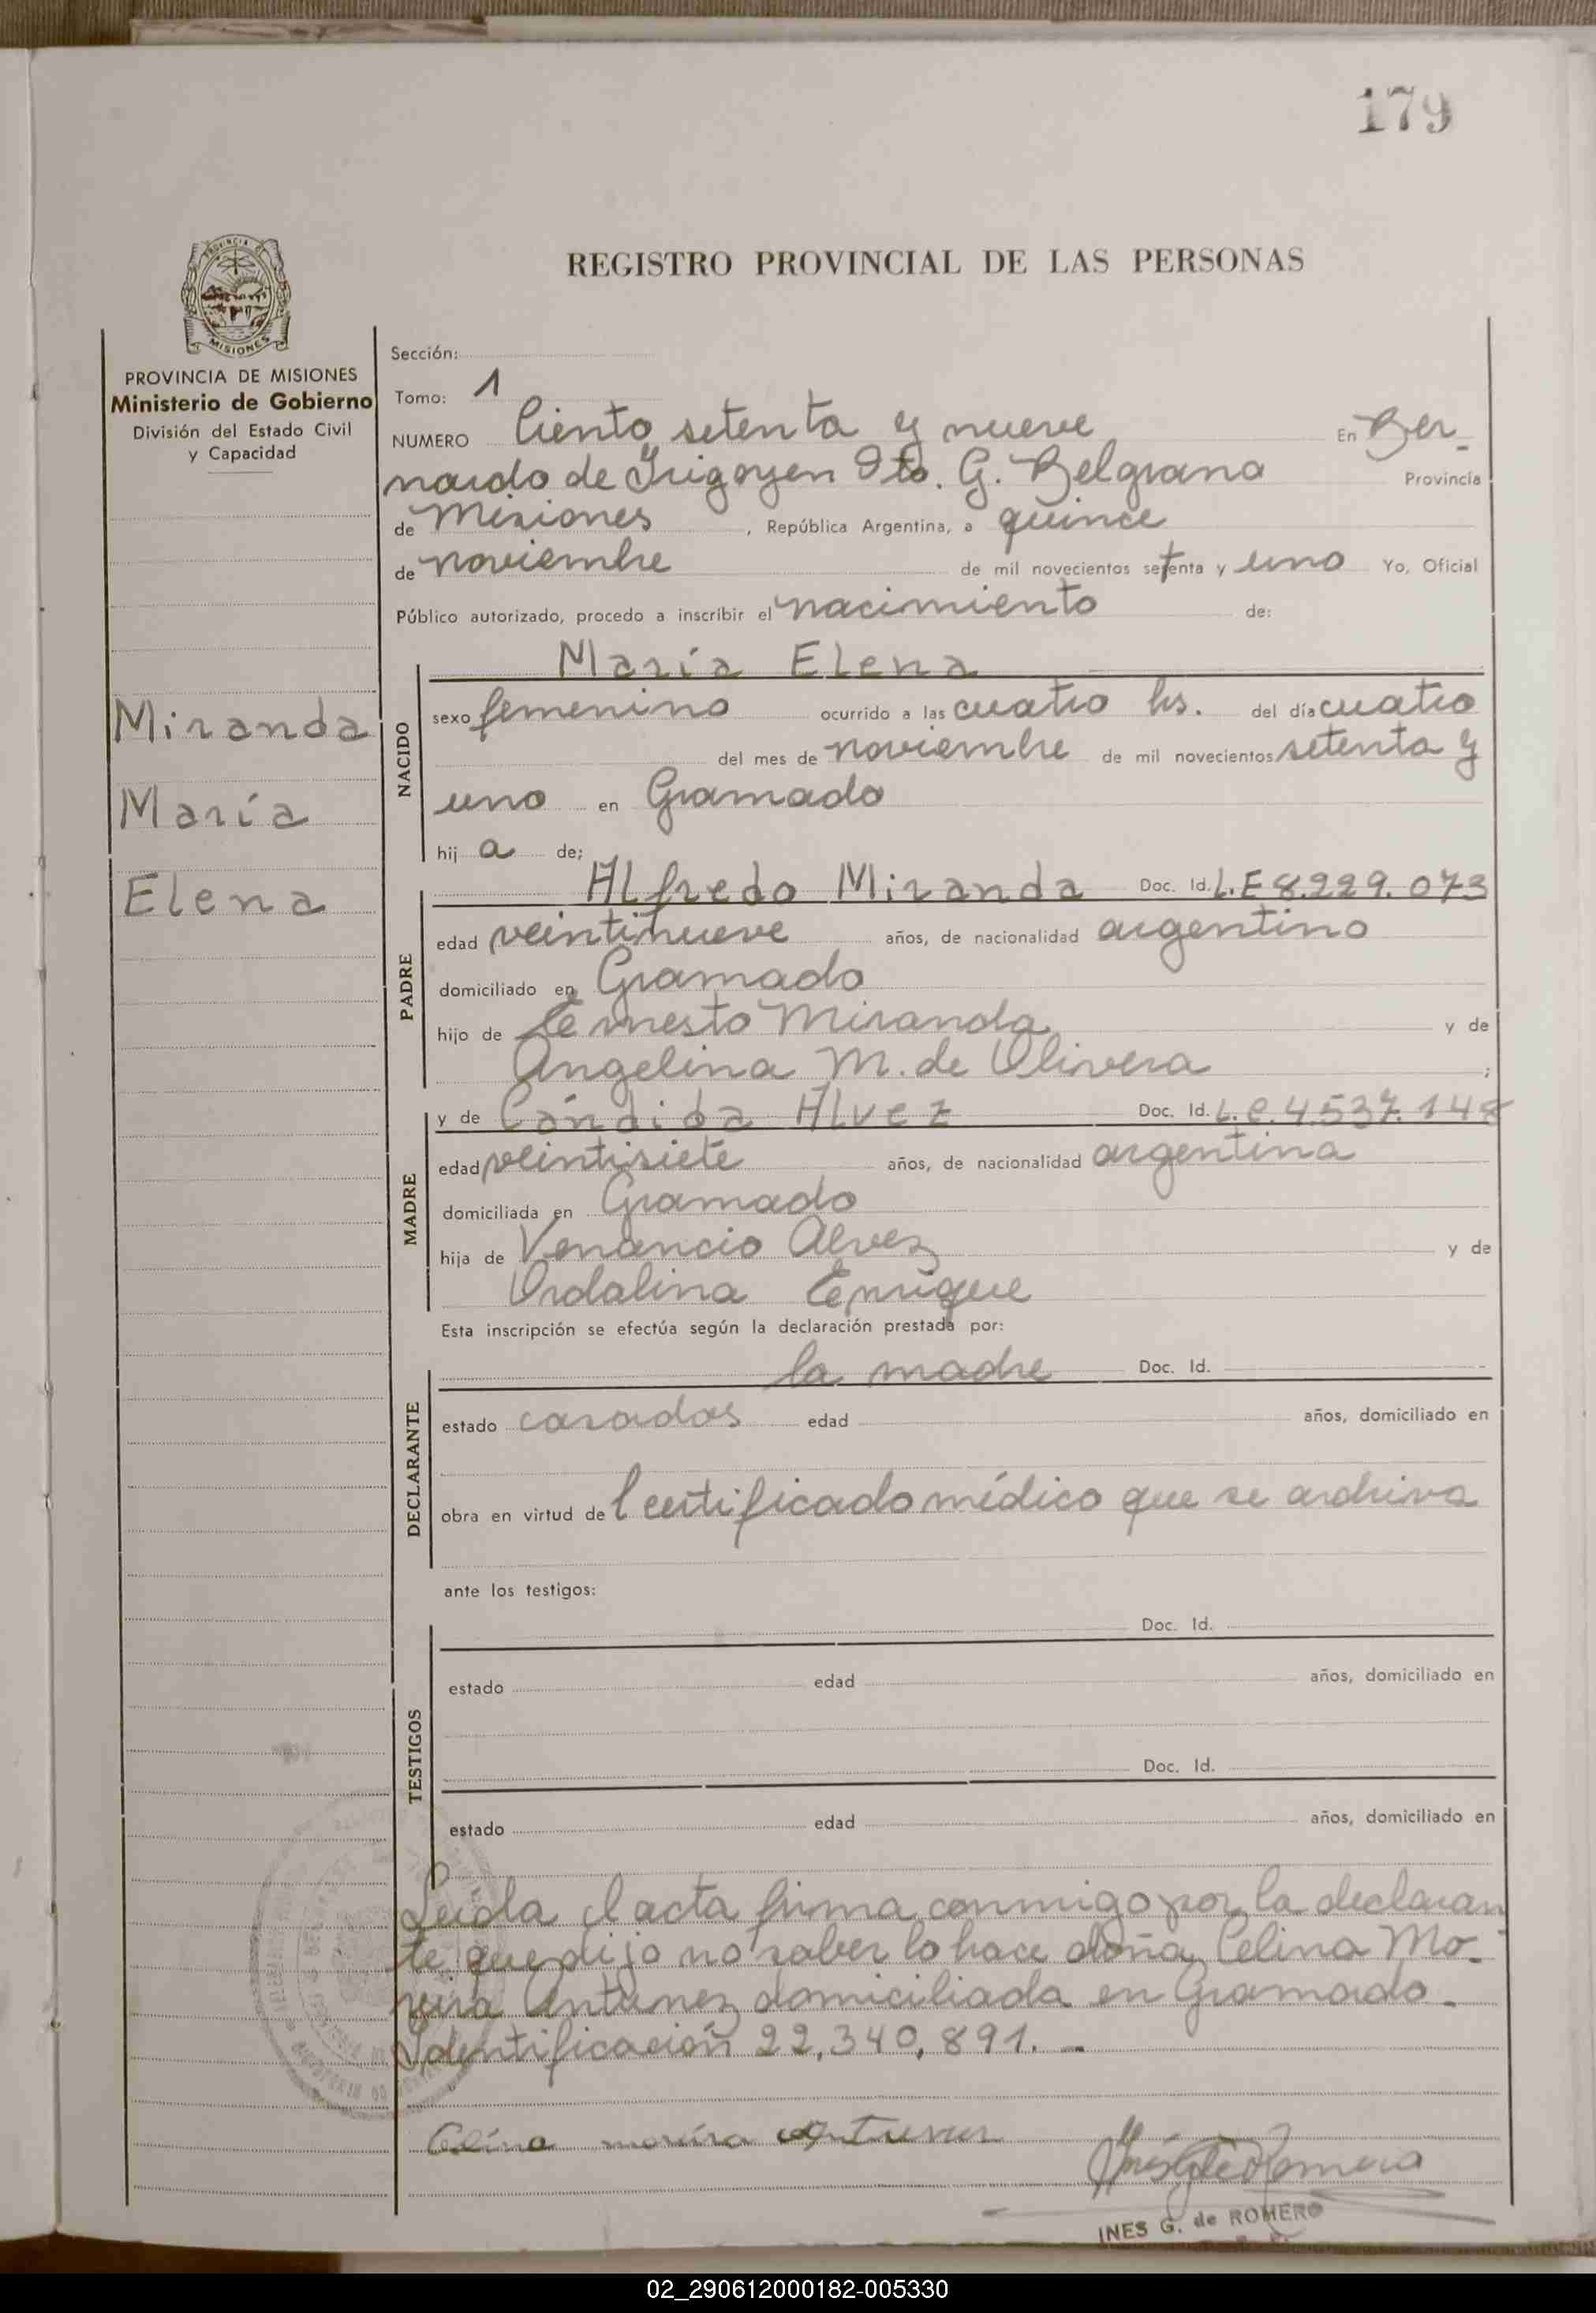 179
REGISTRO PROVINCIAL DE LAS PERSONAS
PROVINCIA DE MISIONES
Ministerio de Gobierno
División del Estado Civil
y Capacidad
Miranda
María
Elena
Sección:
Tomo: 1
NUMERO Ciento setenta y nueve En Ber-
nardo de Irigoyen Dto. G. Belgrano Provincia
de Misiones, República Argentina, a quince
de noviembre de mil novecientos setenta y uno Yo, Oficial
Público autorizado, procedo a inscribir el nacimiento de:
NACIDO
María Elena
sexo femenino ocurrido a las cuatro hs. del día cuatro
del mes de noviembre de mil novecientos setenta y
uno en Gramado
hija de;
PADRE
Alfredo Miranda Doc. Id. L.E 8.229.073
edad veintinueve años, de nacionalidad argentino
domiciliado en Gramado
hijo de Ernesto Miranda y de
Angelina M. de Olivera ;
MADRE
y de Cándida Alvez Doc. Id. L.C. 4.537.148
edad veintisiete años, de nacionalidad argentina
domiciliada en Gramado
hija de Venancio Alvez y de
Ordalina Enrique
Esta inscripción se efectúa según la declaración prestada por:
DECLARANTE
la madre Doc. Id.
estado casados edad años, domiciliado en
obra en virtud del certificado médico que se archiva
ante los testigos:
TESTIGOS
Doc. Id.
estado edad años, domiciliado en
Doc. Id.
estado edad años, domiciliado en
Leída el acta firma conmigo por la declaran
te que dijo no saber lo hace doña Celina Mo-
reira Antunez domiciliada en Gramado.
Identificación 22,340,891. -
Celina moreira Antunes
INES G. de ROMERO
02_290612000182-005330